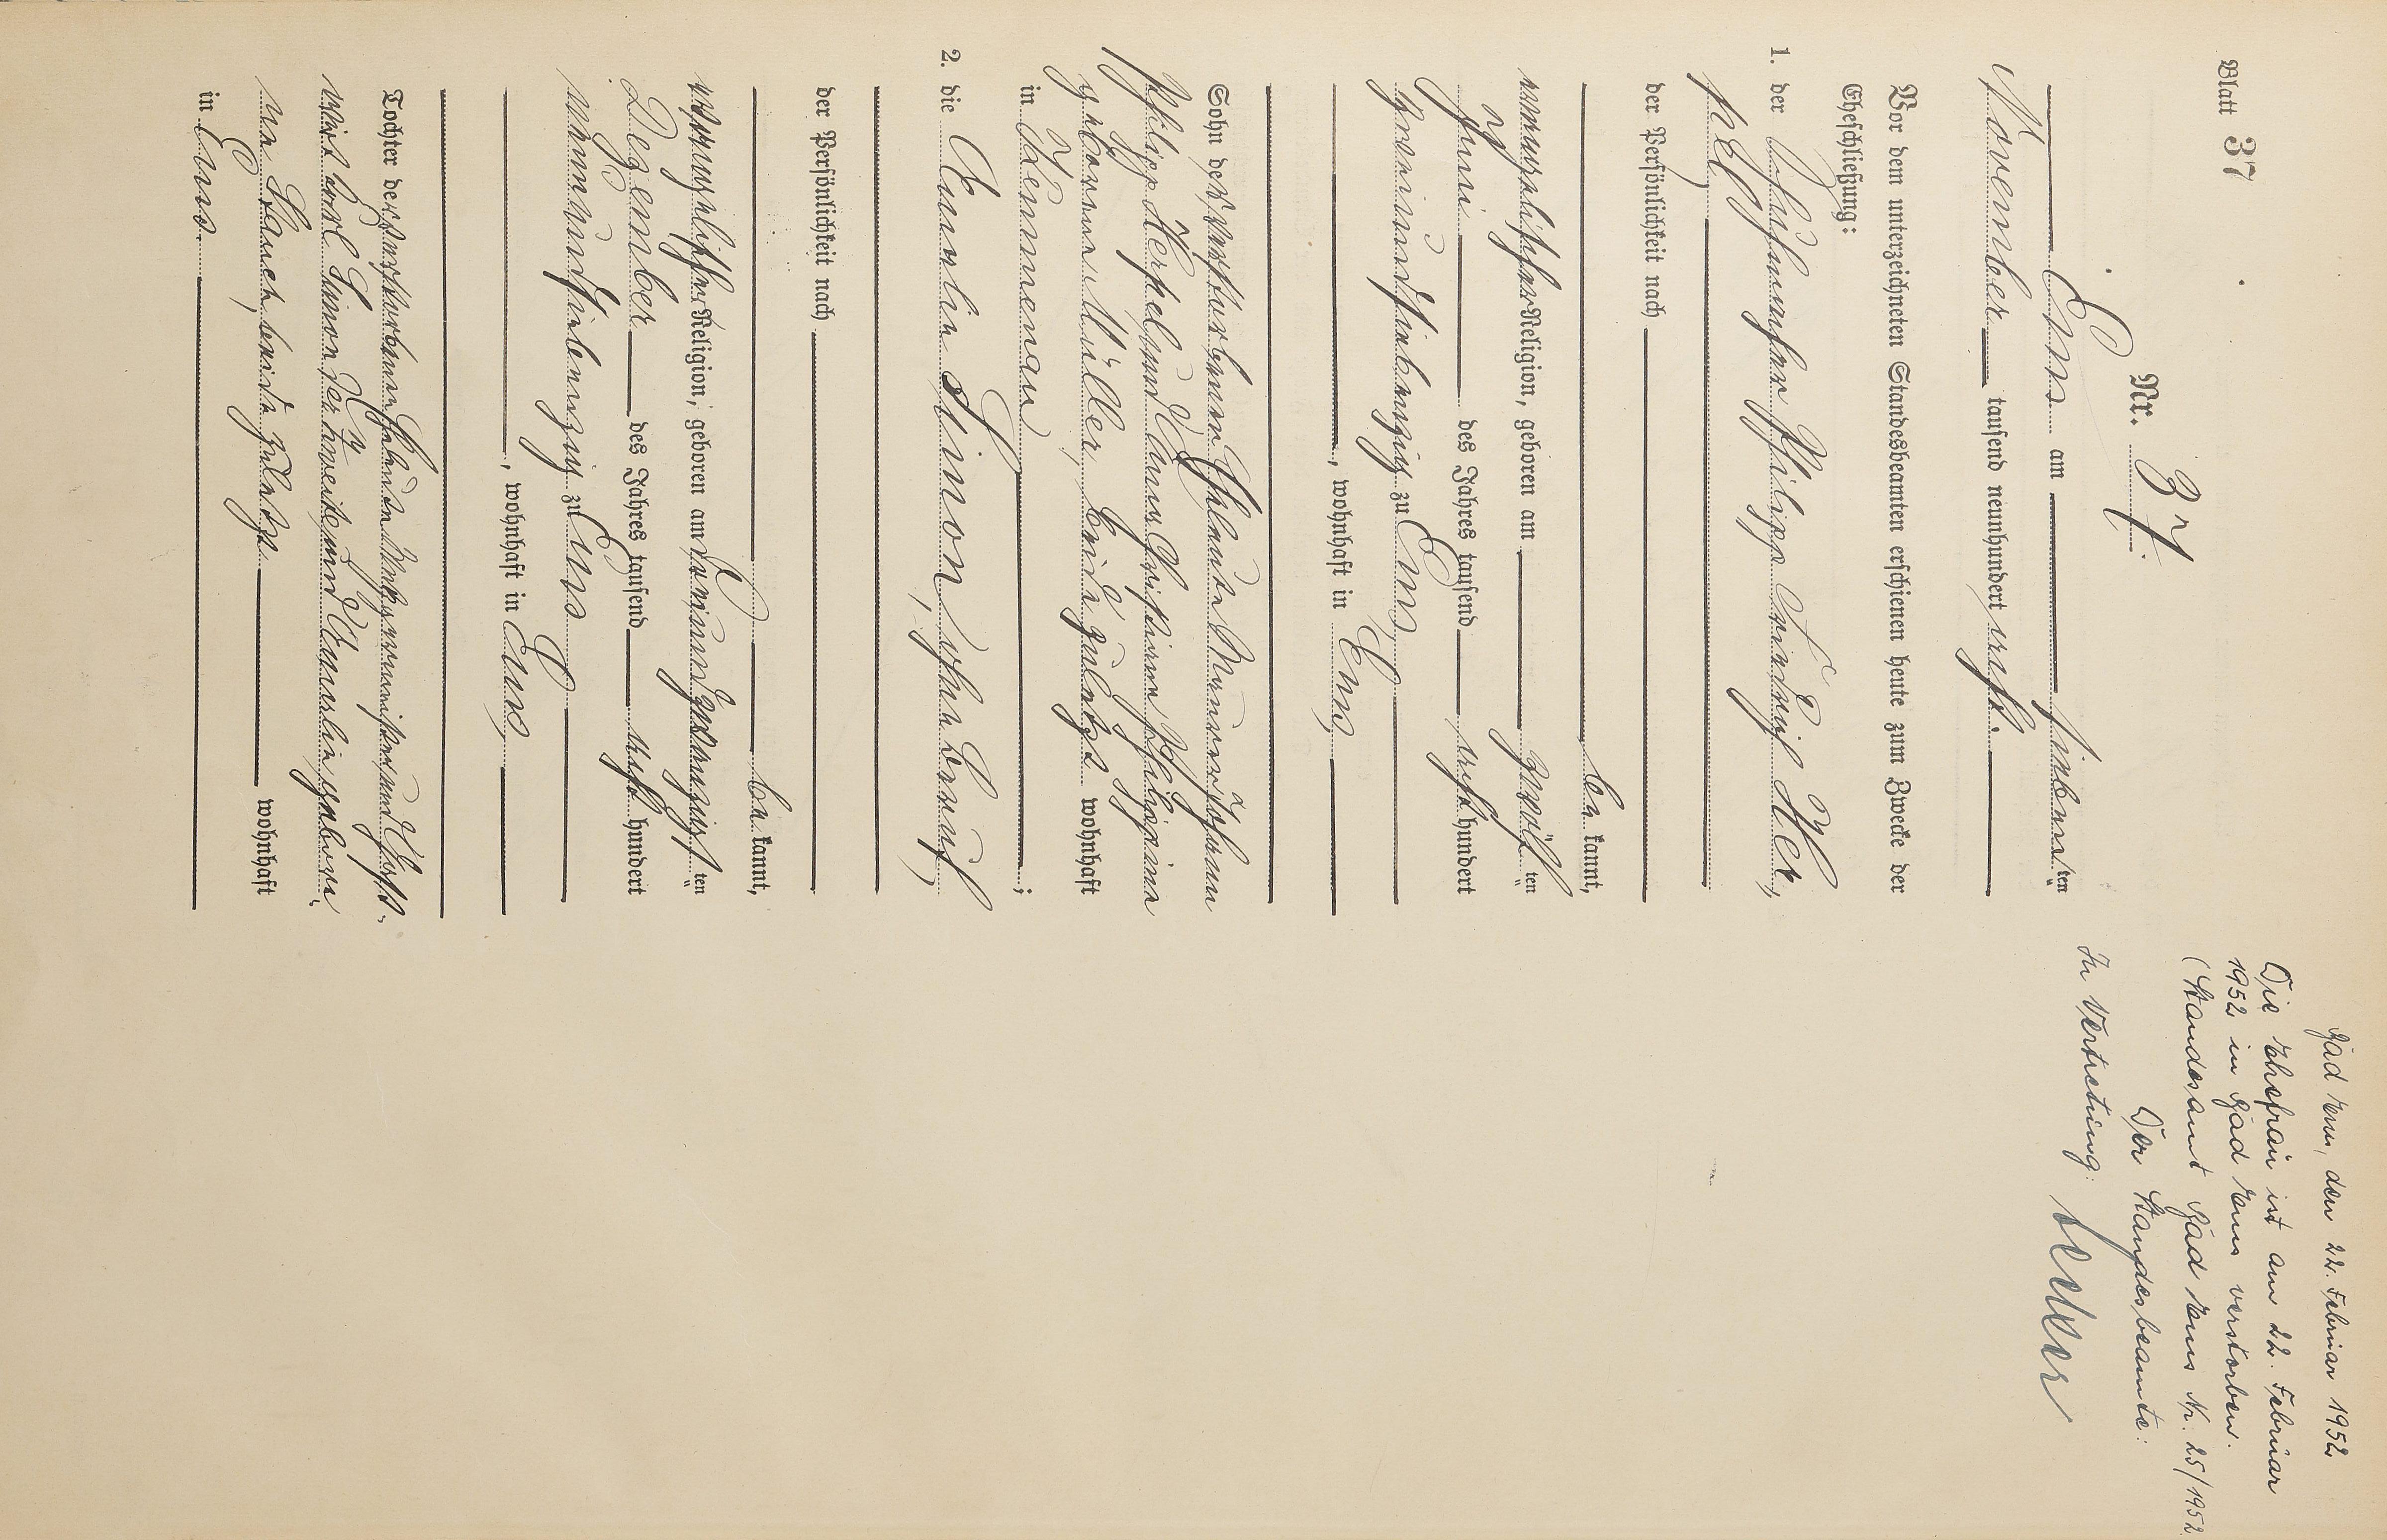 Blatt 37
Nr. 37.
Ems am siebenten
November tausend neunhundert acht.
Vor dem unterzeichneten Standesbeamten erschienen heute zum Zwecke der
Eheschließung:
1. der Schuhmacher Philipp Friedrich Her,
pel,
der Persönlichkeit nach
be kannt,
evangelischer Religion, geboren am zwölf ten
Juni des Jahres tausend acht hundert
dreiundsiebenzig zu Ems,
, wohnhaft in Ems,
Sohn der verstorbenen Eheleute Maurer Johann
Philipp Herpel und Anna Christina Philippina
geborene Müller, beide zuletzt wohnhaft
in Kemmenau ;
2. die Amalie Simon, ohne Beruf,
der Persönlichkeit nach
be kannt,
evangelischer Religion, geboren am dreiundzwanzigsten
Dezember des Jahres tausend acht hundert
neunundsiebenzig zu Ems
, wohnhaft in Ems,
Tochter der verstorbenen Eheleute und Gast-
wirt Karl Simon der Zweite und Karoline gebore-
ne Bauch, beide zuletzt wohnhaft
in Ems.
Bad Ems, den 22. Februar 1952
Die Ehefrau ist am 22. Februar
1952 in Bad Ems verstorben.
(Standesamt Bad Ems Nr. 25/1952
Der Standesbeamte:
In Vertretung: